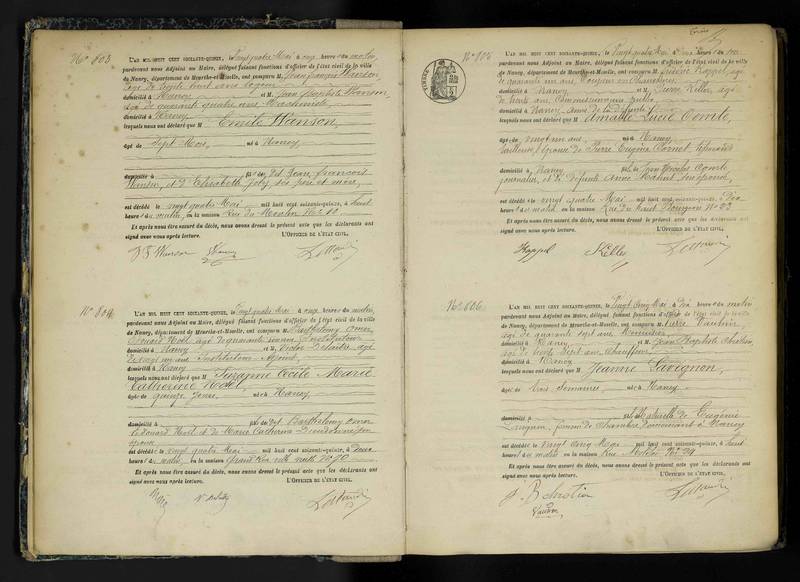 No 803
L'AN MIL HUIT CENT SOIXANTE-QUINZE, le Vingt quatre Mai à onze heures du matin,
pardevant nous Adjoint au Maire, délégué faisant fonctions d'officier de l'état civil de la ville
de Nancy, département de Meurthe-et-Moselle, ont comparu M. Jean François Wanson,
âgé de trente huit ans
domicilié à Nancy et M. Jean Baptiste Wanson,
âgé de quarante quatre ans Machiniste,
domicilié à Nancy
lesquels nous ont déclaré que M Emile Wanson
âgé de Sept Mois, né à Nancy
domicilié à fils de Jean François
Wanson, et d'Elisabeth Joly, ses père et mère,
est décédé le vingt quatre Mai mil huit cent soixante-quinze, à huit
heures du matin, en la maison Rue du Moulin No 10
Et après nous être assuré du décès, nous avons dressé le présent acte que les déclarants ont
signé avec nous après lecture. L'OFFICIER DE L'ÉTAT CIVIL,
J F Wanson Wanson
No 804
L'AN MIL HUIT CENT SOIXANTE-QUINZE, le Vingt quatre Mai à onze heures du matin,
pardevant nous Adjoint au Maire, délégué faisant fonctions d'officier de l'état civil de la ville
de Nancy, département de Meurthe-et-Moselle, ont comparu M. Barthélemy Omer
Edouard Noël âgé de quarante
domicilié à Nancy et M. Victor âgé
de vingt un ans Instituteur Adjoint,
domicilié à Nancy
lesquels nous ont déclaré que M Suzanne Cécile Marie
Catherine Noël
âgé de quinze Jours, né à Nancy
domicilié à fille de Barthélemy Omer
Edouard Noël et de Marie Catherine
épouse
est décédé le vingt quatre Mai mil huit cent soixante-quinze, à Deux
heures du matin, en la maison Grand Rue ville vieille No 90
Et après nous être assuré du décès, nous avons dressé le présent acte que les déclarants ont
signé avec nous après lecture. L'OFFICIER DE L'ÉTAT CIVIL,
No 805
TIMBRE
L'AN MIL HUIT CENT SOIXANTE-QUINZE, le Vingt quatre Mai à onze heures du matin
pardevant nous Adjoint au Maire, délégué faisant fonctions d'officier de l'état civil de la ville
de Nancy, département de Meurthe-et-Moselle, ont comparu M. Kappel, âgé
de quarante un ans,
domicilié à Nancy et M. Pierre Keller, âgé
de trente ans, Commissionnaire public,
domicilié à Nancy, amis de la défunte
lesquels nous ont déclaré que M Amable Lucie Comte,
âgé de vingt un ans né à Nancy,
tailleuse, épouse de Pierre Eugène
domicilié à Nancy fille de Jean Nicolas Comte
journalier, et de défunte Anne son épouse,
est décédé le vingt quatre Mai mil huit cent soixante-quinze, à Dix
heures du matin en la maison Rue du haut Bourgeois No 23
Et après nous être assuré du décès, nous avons dressé le présent acte que les déclarants ont
signé avec nous après lecture. L'OFFICIER DE L'ÉTAT CIVIL,
Kappel Keller
No 806
L'AN MIL HUIT CENT SOIXANTE-QUINZE, le Vingt cinq Mai à dix heures du matin
pardevant nous Adjoint au Maire, délégué faisant fonctions d'officier de l'état civil de la ville
de Nancy, département de Meurthe-et-Moselle, ont comparu M. Pierre Vautrin,
âgé de quarante sept ans Menuisier
domicilié à Nancy et M. Jean Baptiste
âgé de trente sept ans, Chauffeur
domicilié à Nancy
lesquels nous ont déclaré que M Jeanne Lavignon,
âgé de trois semaines né à Nancy
domicilié à fille Naturelle de Eugénie
Lavignon, femme de Chambre, demeurant à Nancy
est décédé le vingt cinq Mai mil huit cent soixante-quinze, à huit
heures du matin en la maison Rue No 24
Et après nous être assuré du décès, nous avons dressé le présent acte que les déclarants ont
signé avec nous après lecture. L'OFFICIER DE L'ÉTAT CIVIL,
Vautrin